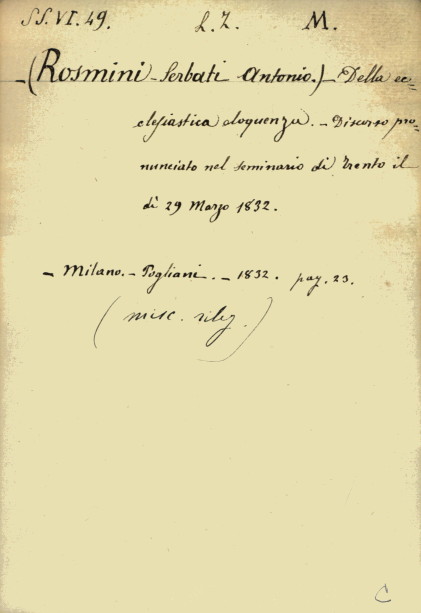 SS. VI. 49. L. Z. M.
- (Rosmini - Serbati Antonio.) - Della ec=
clesiastica eloquenza. - Discorso pro=
nunciato nel seminario di Trento il
dì 29 Marzo 1832.
- Milano. - Pogliani. - 1832. pag. 23.
(misc. rileg.)
C